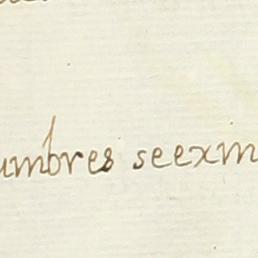 umbres seexm